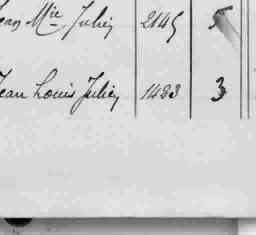 Jean Mie Julien 2145 5
Jean Louis Julien 1483 3